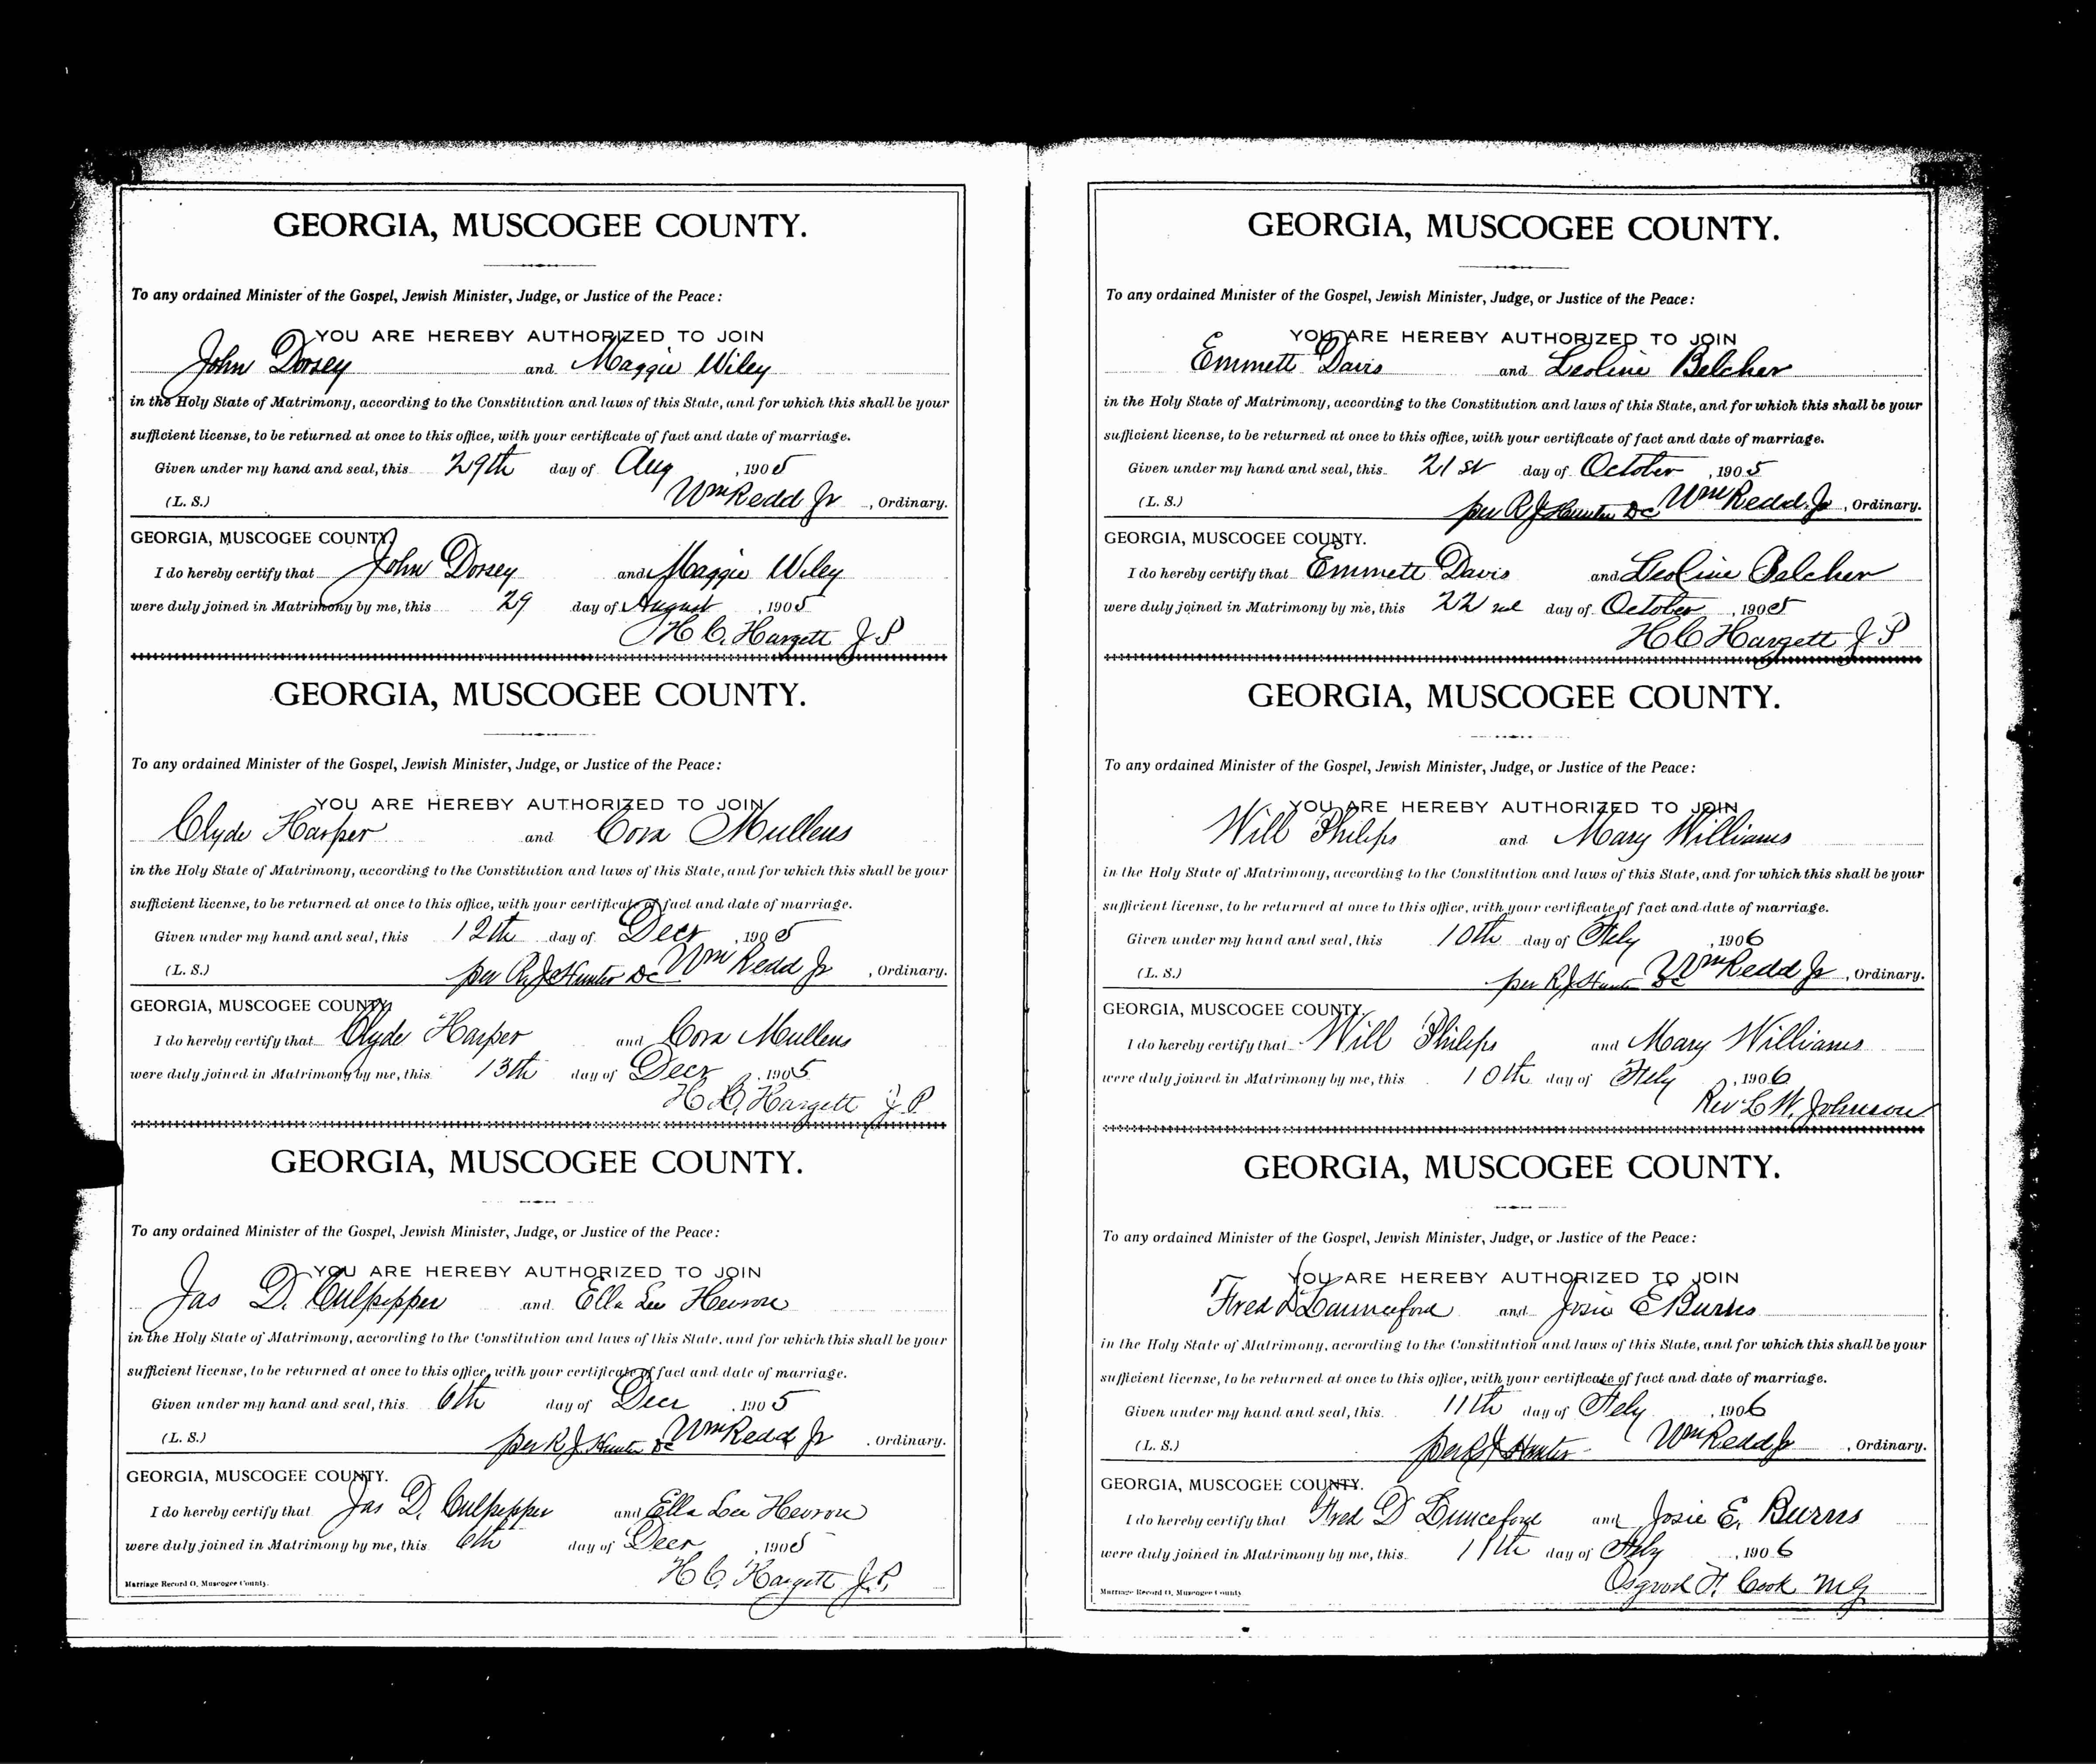 GEORGIA, MUSCOGEE COUNTY.
To any ordained Minister of the Gospel, Jewish Minister, Judge, or Justice of the Peace:
YOU ARE HEREBY AUTHORIZED TO JOIN
John Dorsey and Maggie Wiley
in the Holy State of Matrimony, according to the Constitution and laws of this State, and for which this shall be your
sufficient license, to be returned at once to this office, with your certificate of fact and date of marriage.
Given under my hand and seal, this 29th day of Aug, 1905
(L. S.) Wm Redd Jr, Ordinary.
GEORGIA, MUSCOGEE COUNTY.
I do hereby certify that John Dorsey and Maggie Wiley
were duly joined in Matrimony by me, this 29 day of August, 1905
H C. Hargett J P
GEORGIA, MUSCOGEE COUNTY.
To any ordained Minister of the Gospel, Jewish Minister, Judge, or Justice of the Peace:
YOU ARE HEREBY AUTHORIZED TO JOIN
Clyde Harper and Cora Mullens
in the Holy State of Matrimony, according to the Constitution and laws of this State, and for which this shall be your
sufficient license, to be returned at once to this office, with your certificate of fact and date of marriage.
Given under my hand and seal, this 12th day of Decr, 1905
(L. S.) per R. J. Hunter DC Wm Redd Jr, Ordinary.
GEORGIA, MUSCOGEE COUNTY.
I do hereby certify that Clyde Harper and Cora Mullens
were duly joined in Matrimony by me, this 13th day of Decr, 1905
H C. Hargett J P
GEORGIA, MUSCOGEE COUNTY.
To any ordained Minister of the Gospel, Jewish Minister, Judge, or Justice of the Peace:
YOU ARE HEREBY AUTHORIZED TO JOIN
Jas D. Culpepper and Ella Lee
in the Holy State of Matrimony, according to the Constitution and laws of this State, and for which this shall be your
sufficient license, to be returned at once to this office, with your certificate of fact and date of marriage.
Given under my hand and seal, this 6th day of Decr, 1905
(L. S.) per R J Hunter DC Wm Redd Jr, Ordinary.
GEORGIA, MUSCOGEE COUNTY.
I do hereby certify that Jas D. Culpepper and Ella Lee
were duly joined in Matrimony by me, this 6th day of Decr, 1905
H C. Hargett J.P.
Marriage Record O, Muscogee County.
GEORGIA, MUSCOGEE COUNTY.
To any ordained Minister of the Gospel, Jewish Minister, Judge, or Justice of the Peace:
YOU ARE HEREBY AUTHORIZED TO JOIN
Emmett Davis and Leoline Belcher
in the Holy State of Matrimony, according to the Constitution and laws of this State, and for which this shall be your
sufficient license, to be returned at once to this office, with your certificate of fact and date of marriage.
Given under my hand and seal, this 21st day of October, 1905
(L. S.) per R J Hunter DC Wm Redd Jr, Ordinary.
GEORGIA, MUSCOGEE COUNTY.
I do hereby certify that Emmett Davis and Leoline Belcher
were duly joined in Matrimony by me, this 22nd day of October, 1905
H C Hargett J P
GEORGIA, MUSCOGEE COUNTY.
To any ordained Minister of the Gospel, Jewish Minister, Judge, or Justice of the Peace:
YOU ARE HEREBY AUTHORIZED TO JOIN
Will Philips and Mary Williams
in the Holy State of Matrimony, according to the Constitution and laws of this State, and for which this shall be your
sufficient license, to be returned at once to this office, with your certificate of fact and date of marriage.
Given under my hand and seal, this 10th day of Feby, 1906
(L. S.) per R J Hunter DC Wm Redd Jr, Ordinary.
GEORGIA, MUSCOGEE COUNTY.
I do hereby certify that Will Philips and Mary Williams
were duly joined in Matrimony by me, this 10th day of Feby, 1906
Rev L W. Johnson
GEORGIA, MUSCOGEE COUNTY.
To any ordained Minister of the Gospel, Jewish Minister, Judge, or Justice of the Peace:
YOU ARE HEREBY AUTHORIZED TO JOIN
Fred D Launceford and Josie E Burns
in the Holy State of Matrimony, according to the Constitution and laws of this State, and for which this shall be your
sufficient license, to be returned at once to this office, with your certificate of fact and date of marriage.
Given under my hand and seal, this 11th day of Feby, 1906
(L. S.) per R J Hunter Wm Redd Jr, Ordinary.
GEORGIA, MUSCOGEE COUNTY.
I do hereby certify that Fred D Lunceford and Josie E. Burns
were duly joined in Matrimony by me, this 11th day of Feby, 1906
Osgood F. Cook M G
Marriage Record O, Muscogee County